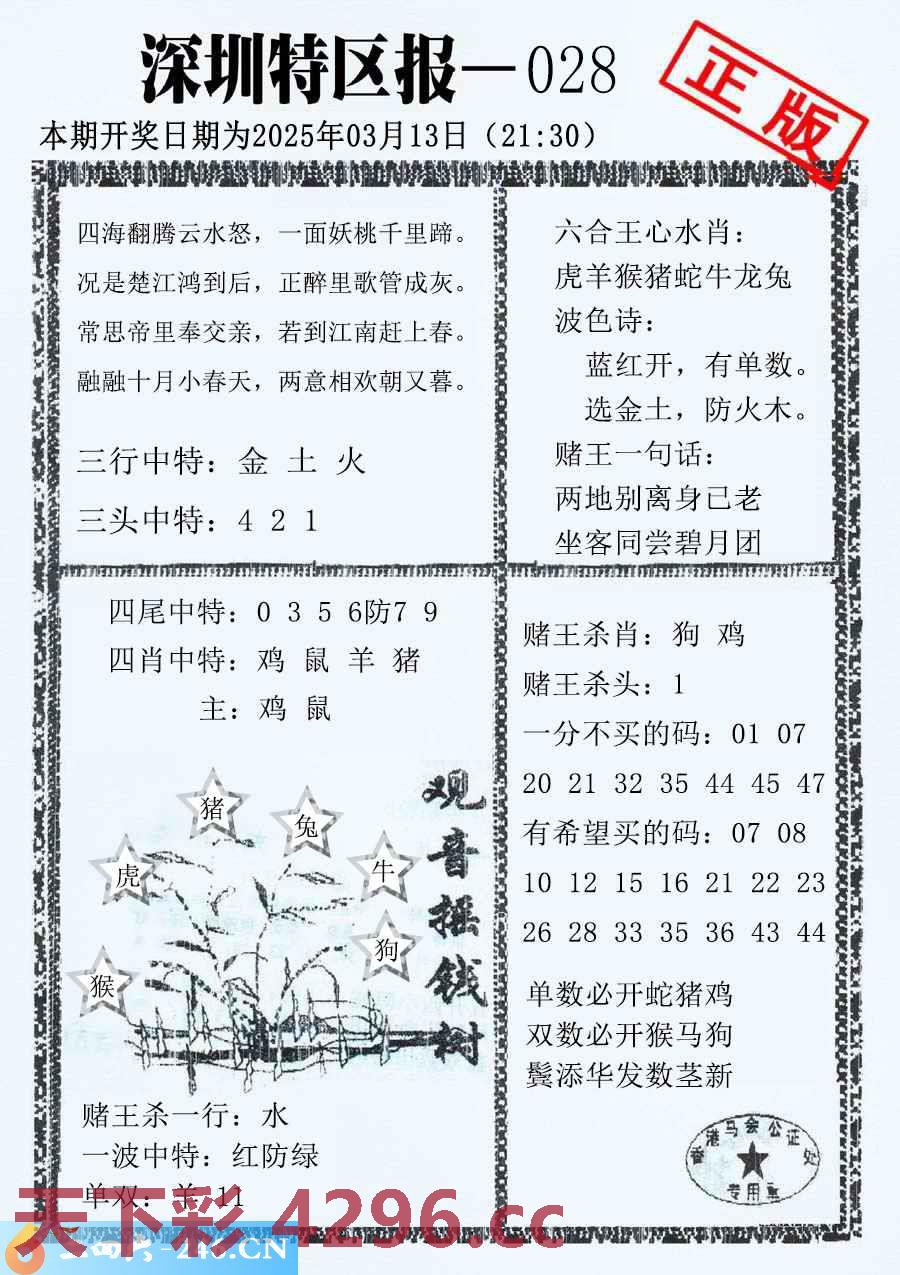 深圳特区报—028
正版
本期开奖日期为2025年03月13日（21:30）
四海翻腾云水怒，一面妖桃千里蹄。
况是楚江鸿到后，正醉里歌管成灰。
常思帝里奉交亲，若到江南赶上春。
融融十月小春天，两意相欢朝又暮。
三行中特：金 土 火
三头中特：4 2 1
六合王心水肖：
虎羊猴猪蛇牛龙兔
波色诗：
蓝红开，有单数。
选金土，防火木。
赌王一句话：
两地别离身已老
坐客同尝碧月团
四尾中特：0 3 5 6防7 9
四肖中特：鸡 鼠 羊 猪
主：鸡 鼠
猪
兔
虎
牛
狗
猴
观音摇钱树
赌王杀一行：水
一波中特：红防绿
单双：羊 11
赌王杀肖：狗 鸡
赌王杀头：1
一分不买的码：01 07
20 21 32 35 44 45 47
有希望买的码：07 08
10 12 15 16 21 22 23
26 28 33 35 36 43 44
单数必开蛇猪鸡
双数必开猴马狗
鬓添华发数茎新
香港马会公证处
专用章
天下彩 4296.cc
246.CN